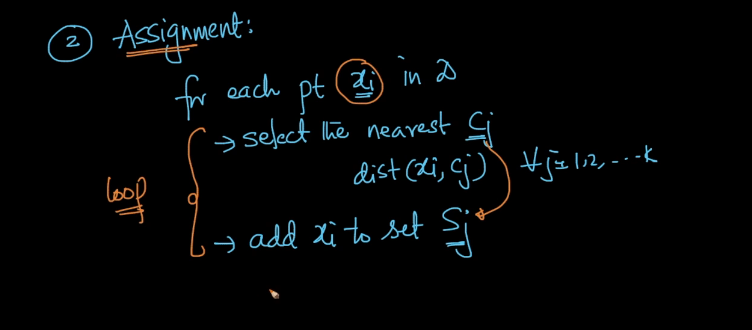 ② Assignment:
for each pt xi in D
→ select the nearest Cj
dist(xi, Cj) ∀j=1,2,...k
loop
→ add xi to set Sj